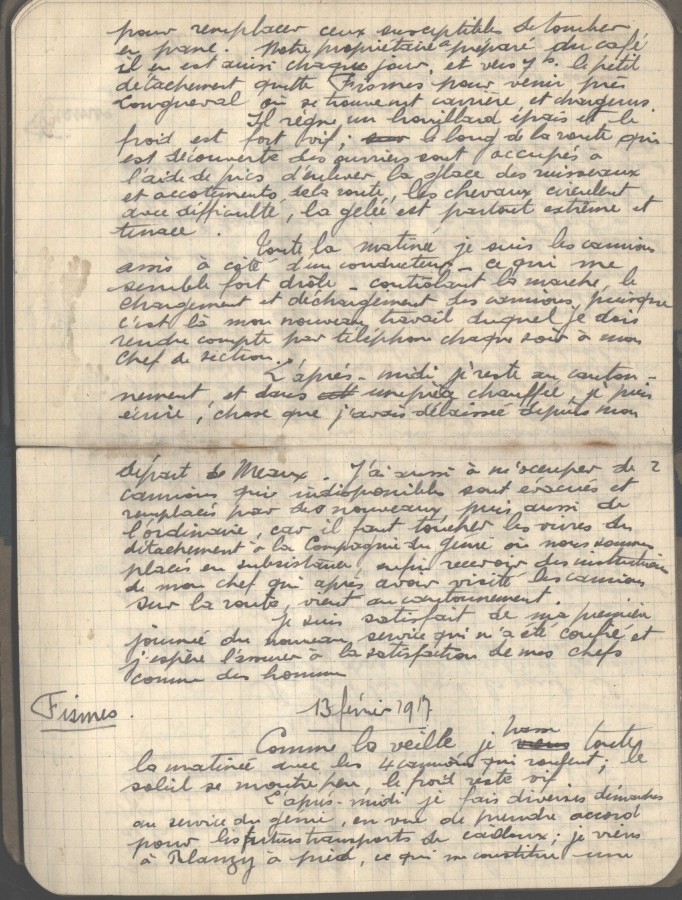 pour remplacer ceux susceptibles de tomber
en panne. Notre propriétaire a préparé du café
il en est ainsi chaque jour, et vers 7h. le petit
détachement quitte Fismes pour venir près
Longueval où se trouve une carrière, et chargeons.
Il règne un brouillard épais et le
froid est fort vif; le long de la route qui
est découverte des ouvriers sont occupés à
l'aide de pics d'enlever la glace des ruisseaux
et accotements de la route, les chevaux circulent
avec difficulté, la gelée est partout extrême et
tenace.
Toute la matinée je suis les camions
assis à côté d'un conducteur - ce qui me
semble fort drôle - contrôlant la marche, le
chargement et déchargement des camions, puisque
c'est là mon nouveau travail duquel je dois
rendre compte par téléphone chaque soir à mon
chef de section.
L'après-midi je reste au canton-
nement, et dans une pièce chauffée, je puis
écrire, chose que j'avais délaissée depuis mon
départ de Meaux. J'ai aussi à m'occuper de 2
camions qui indisponibles sont évacués et
remplacés par des nouveaux puis aussi de
l'ordinaire, car il faut toucher les vivres du
détachement à la Compagnie du génie où nous sommes
placés en subsistance, enfin recevoir des instructions
de mon chef qui après avoir visité les camions
sur la route, vient au cantonnement.
Je suis satisfait de ma première
journée du nouveau service qui m'a été confié et
j'espère l'assurer à la satisfaction de mes chefs
comme des hommes
Fismes.
13 février 1917
Comme la veille, je toute
la matinée avec les 4 camions qui roulent; le
soleil se montre peu, le froid reste vif
L'après-midi je fais diverses démarches
au service du génie, en vue de prendre accord
pour les futurs transports de cailloux; je viens
à Blanzy à pied, ce qui me constitue une